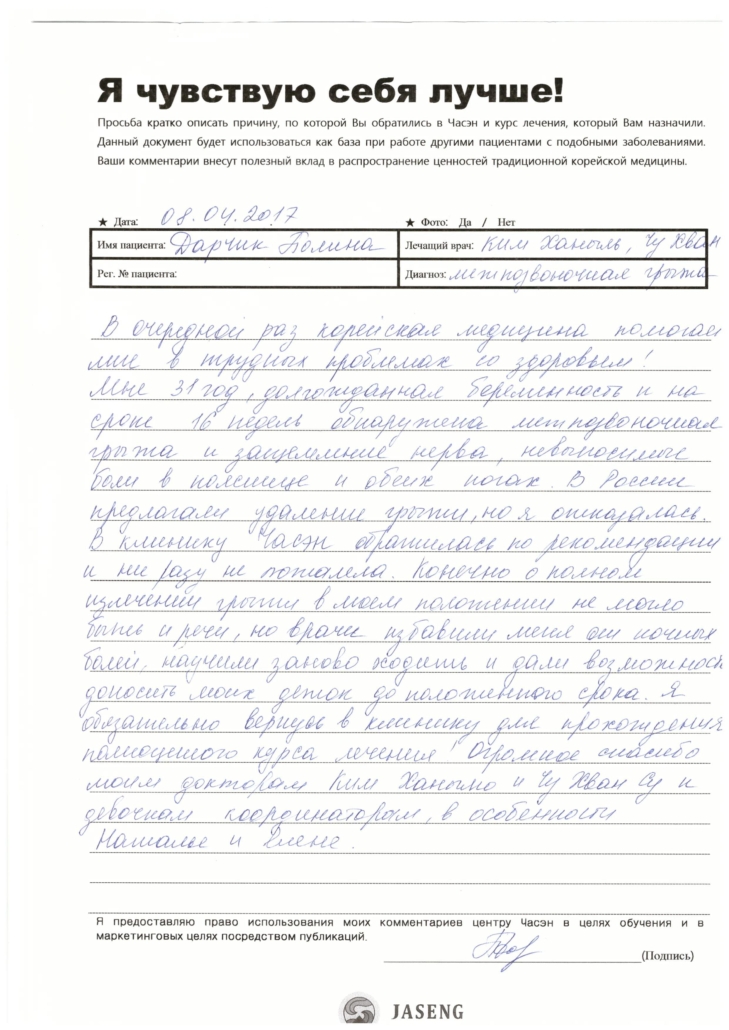 Я чувствую себя лучше!
Просьба кратко описать причину, по которой Вы обратились в Часэн и курс лечения, который Вам назначили.
Данный документ будет использоваться как база при работе другими пациентами с подобными заболеваниями.
Ваши комментарии внесут полезный вклад в распространение ценностей традиционной корейской медицины.
★ Дата: 08.04.2017 ★ Фото: Да / Нет
Имя пациента: Дарчик Полина Лечащий врач: Ким Ханыль, Чу Хван
Рег. № пациента: Диагноз: межпозвоночная грыжа
В очередной раз корейская медицина помогает
мне в трудных проблемах со здоровьем!
Мне 31 год, долгожданная беременность и на
сроке 16 недель обнаружена межпозвоночная
грыжа и защемление нерва, невыносимые
боли в пояснице и обеих ногах. В России
предлагали удаление грыжи, но я отказалась.
В клинику Часэн обратилась по рекомендации
и ни разу не пожалела. Конечно о полном
излечении грыжи в моем положении не могло
быть и речи, но врачи избавили меня от ночных
болей, научили заново ходить и дали возможность
доносить моих деток до положенного срока. Я
обязательно вернусь в клинику для прохождения
полноценного курса лечения! Огромное спасибо
моим докторам Ким Ханылю и Чу Хван Су и
девочкам координаторам, в особенности
Наталье и Елене.
Я предоставляю право использования моих комментариев центру Часэн в целях обучения и в
маркетинговых целях посредством публикаций.
(Подпись)
JASENG